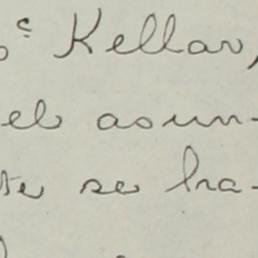 c Kellar,
el asun-
te se ha-